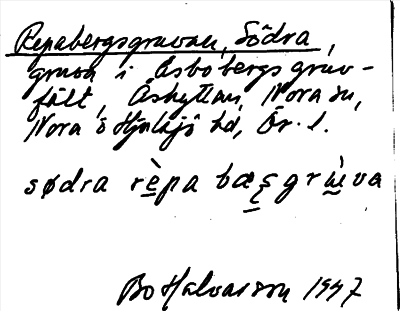 Repabergsgruvan, Södra,
gruva i Åsbobergs gruv-
fält, Åshyttan, Nora sn,
Nora o Hjulsjö hd, Ör. l.
södra rèpa bæʂgrùva
Bo Halvarson 1947